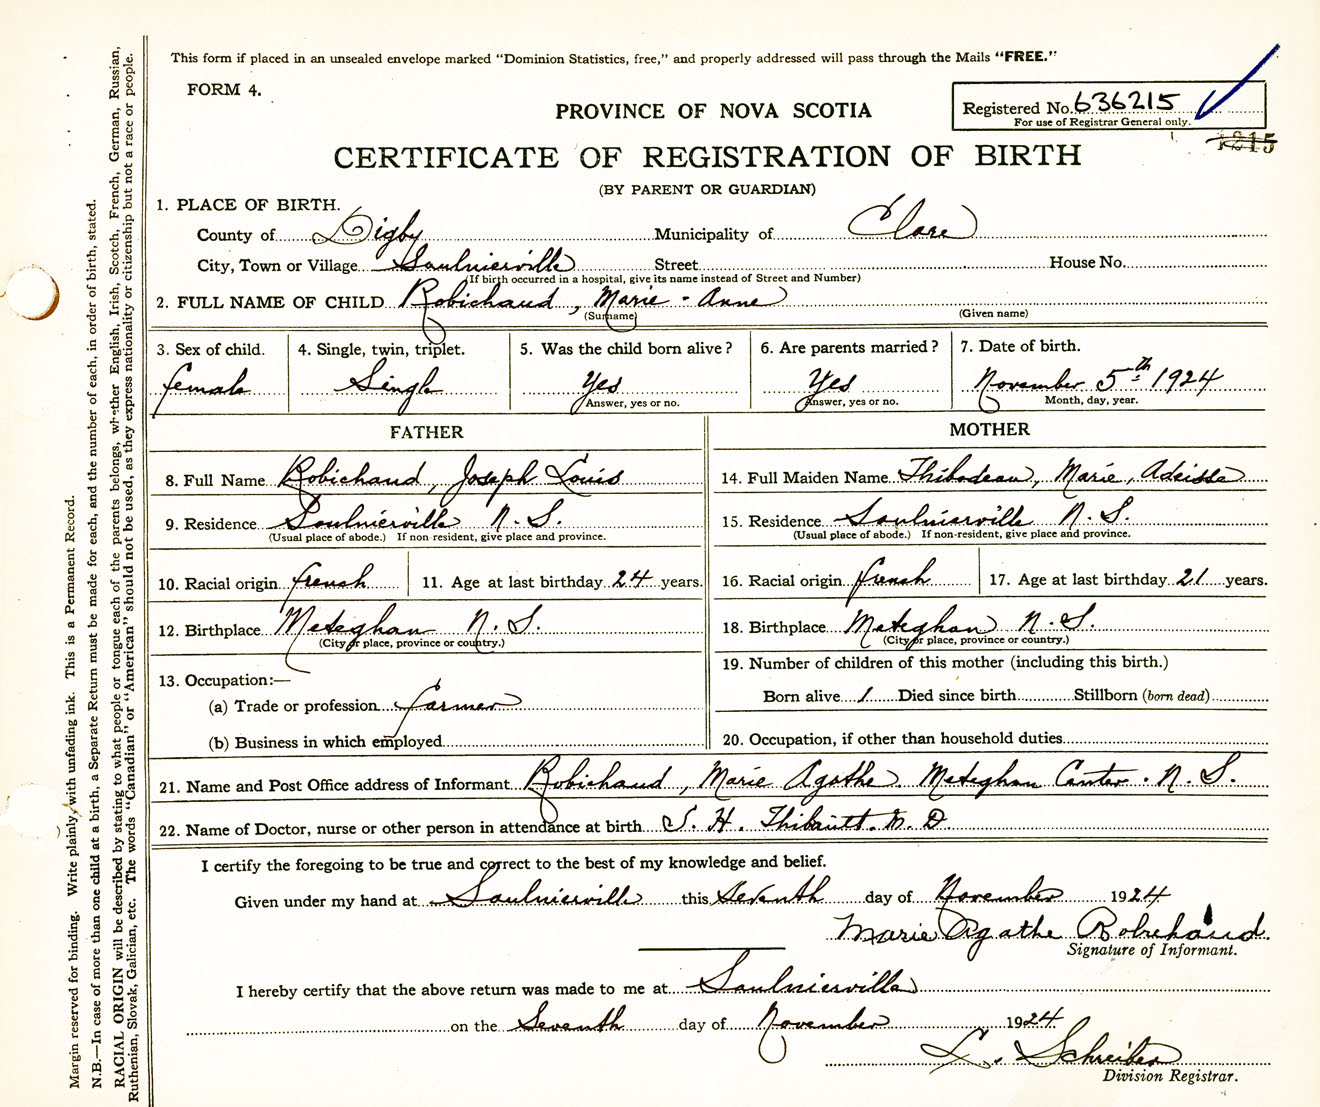 This form if placed in an unsealed envelope marked "Dominion Statistics, free," and properly addressed will pass through the Mails "FREE."
FORM 4.
Registered No. 636215
For use of Registrar General only.
1215
PROVINCE OF NOVA SCOTIA
CERTIFICATE OF REGISTRATION OF BIRTH
(BY PARENT OR GUARDIAN)
1. PLACE OF BIRTH.
County of Digby Municipality of Clare
City, Town or Village Saulnierville Street House No.
(If birth occurred in a hospital, give its name instead of Street and Number)
2. FULL NAME OF CHILD Robichaud, Marie-Anne
(Surname) (Given name)
3. Sex of child. 4. Single, twin, triplet. 5. Was the child born alive? 6. Are parents married? 7. Date of birth.
female Single Yes Yes November 5th 1924
Answer, yes or no. Answer, yes or no. Month, day, year.
FATHER MOTHER
8. Full Name Robichaud, Joseph Louis 14. Full Maiden Name Thibodeau, Marie,
9. Residence Saulnierville N.S. 15. Residence Saulnierville N.S.
(Usual place of abode.) If non-resident, give place and province. (Usual place of abode.) If non-resident, give place and province.
10. Racial origin french 11. Age at last birthday 24 years. 16. Racial origin french 17. Age at last birthday 21 years.
12. Birthplace Meteghan N.S. 18. Birthplace Meteghan N.S.
(City or place, province or country.) (City or place, province or country.)
13. Occupation:— 19. Number of children of this mother (including this birth.)
(a) Trade or profession farmer Born alive 1 Died since birth Stillborn (born dead)
(b) Business in which employed 20. Occupation, if other than household duties
21. Name and Post Office address of Informant Robichaud, Marie Agathe. Meteghan Center. N.S.
22. Name of Doctor, nurse or other person in attendance at birth S. H. Thibault. M.D.
I certify the foregoing to be true and correct to the best of my knowledge and belief.
Given under my hand at Saulnierville this Seventh day of November 1924
Marie Agathe Robichaud.
Signature of Informant.
I hereby certify that the above return was made to me at Saulnierville
on the Seventh day of November 1924
L. Schreiber
Division Registrar.
Margin reserved for binding. Write plainly, with unfading ink. This is a Permanent Record.
N.B.—In case of more than one child at a birth, a Separate Return must be made for each, and the number of each, in order of birth, stated.
RACIAL ORIGIN will be described by stating to what people or tongue each of the parents belongs, whether English, Irish, Scotch, French, German, Russian,
Ruthenian, Slovak, Galician, etc. The words "Canadian" or "American" should not be used, as they express nationality or citizenship but not a race or people.